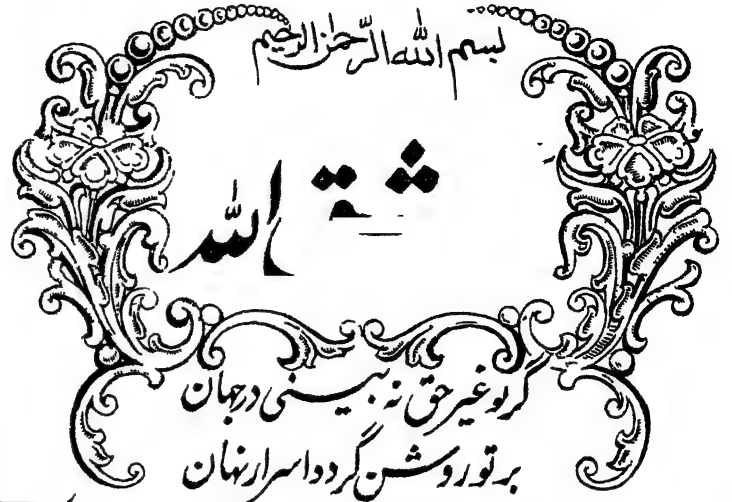 بسم الله الرحمن الرحيم
الله
گر تو غیر حق نہ بینی در جہان
بر تو روشن گردد اسرار نہان